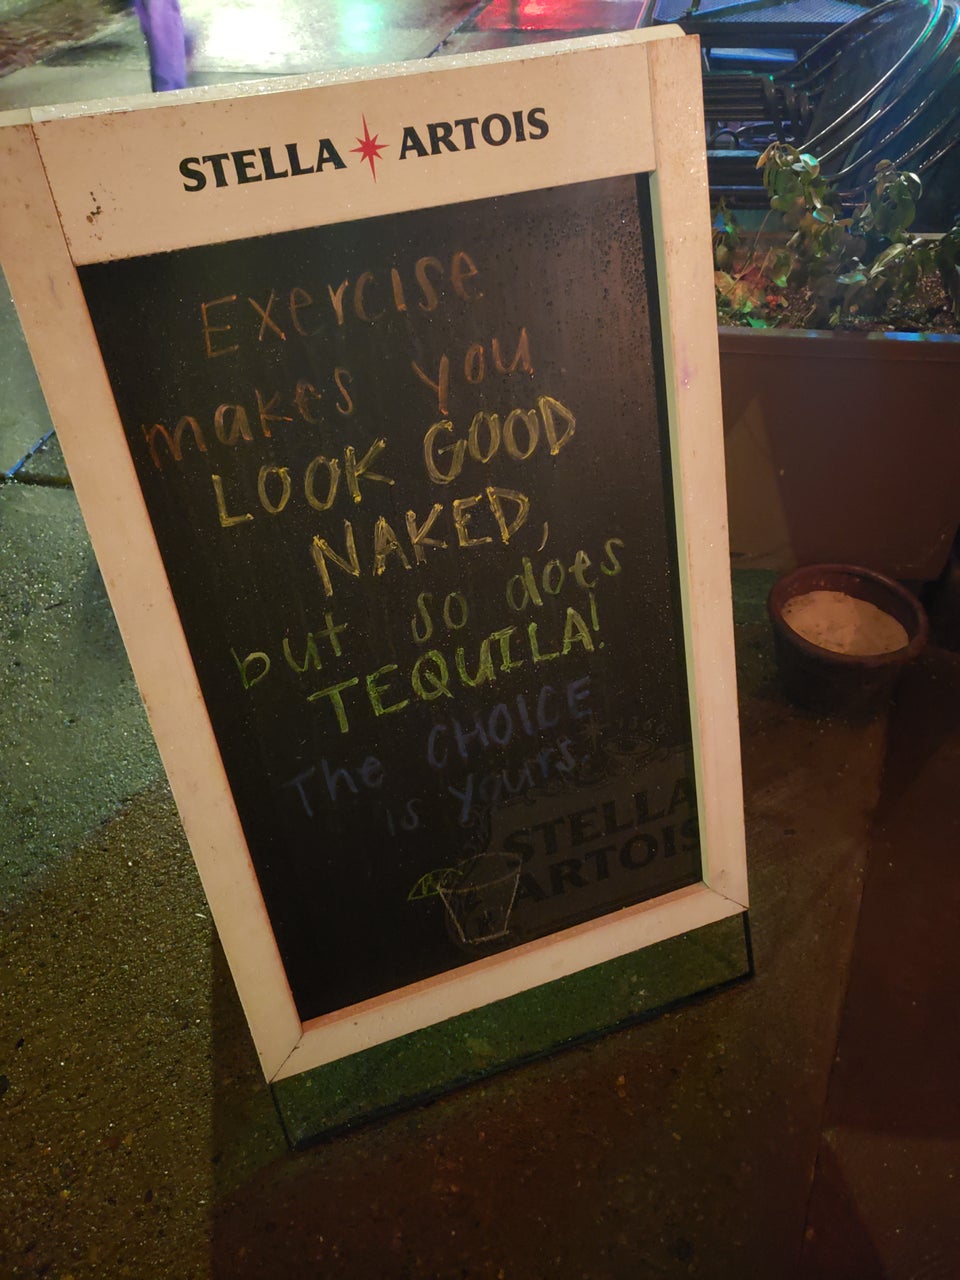 STELLA ARTOIS
Exercise
makes you
LOOK GOOD
NAKED,
but so does
TEQUILA!
The CHOICE
is yours.
1366
STELLA
ARTOIS